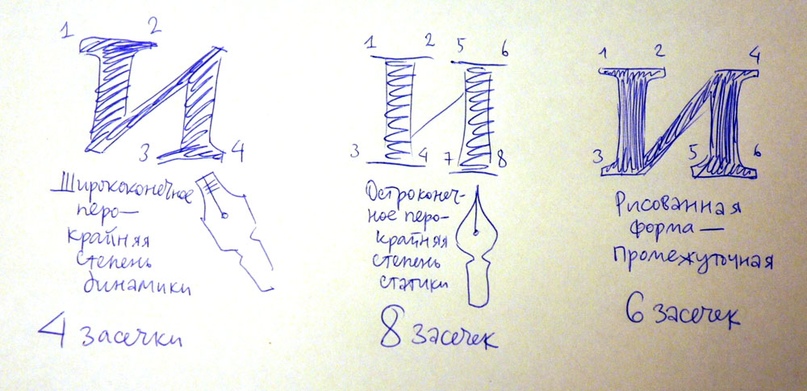 1 2
И
3 4
Ширококонечное
перо—
крайняя
степень
динамики
4 засечки
1 2 5 6
И
3 4 7 8
Остроконеч-
ное перо-
крайняя
степень
статики
8 засечек
1 2 4
И
3 5 6
Рисованная
форма—
промежуточная
6 засечек